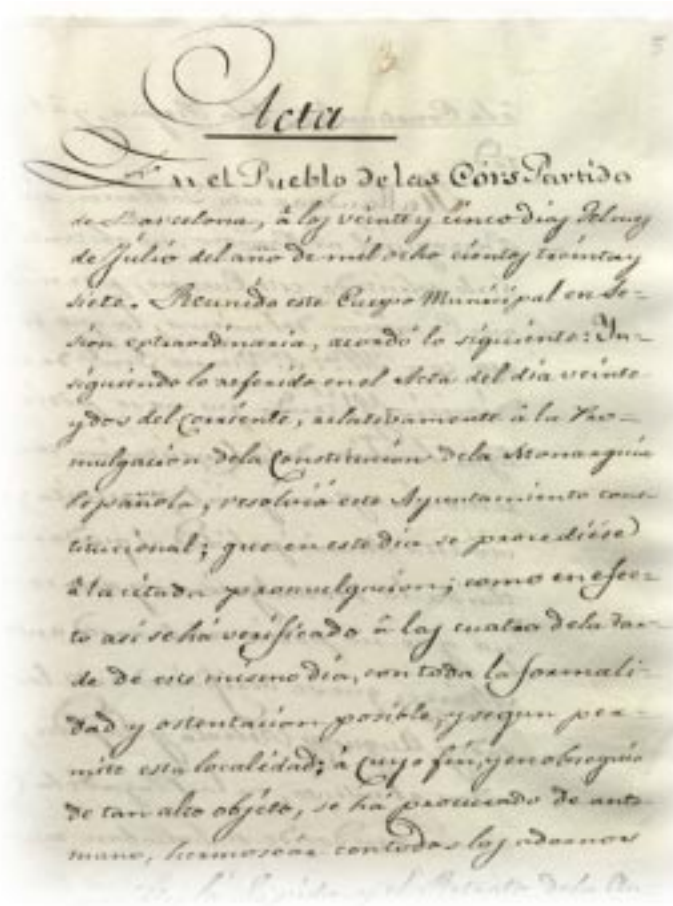 Acta
En el Pueblo de las Còrs Partido
de Barcelona, á los veinte y cinco dias del mes
de Julio del año de mil ocho cientos treinta y
siete. Reunido este Cuerpo Municipal en Se-
sion extraordinaria, acordó lo siguiente: In-
siguiendo lo referido en el Acta del dia veinte
y dos del corriente, relativamente á la Pro-
mulgacion de la Constitucion de la Monarquia
Española, resolviá este Ayuntamiento cons-
titucional; que en este dia se procediése
á la citada promulgacion; como en efec-
to asi se há verificado á las cuatro de la tar-
de de este mismo dia, con toda la formali-
dad y ostentacion posible, y segun per-
mite esta localidad; á cuyo fin, y en obsequio
de tan alto objeto, se há procurado de ante
mano, hermosear con todos los adornos
el Retrato de la